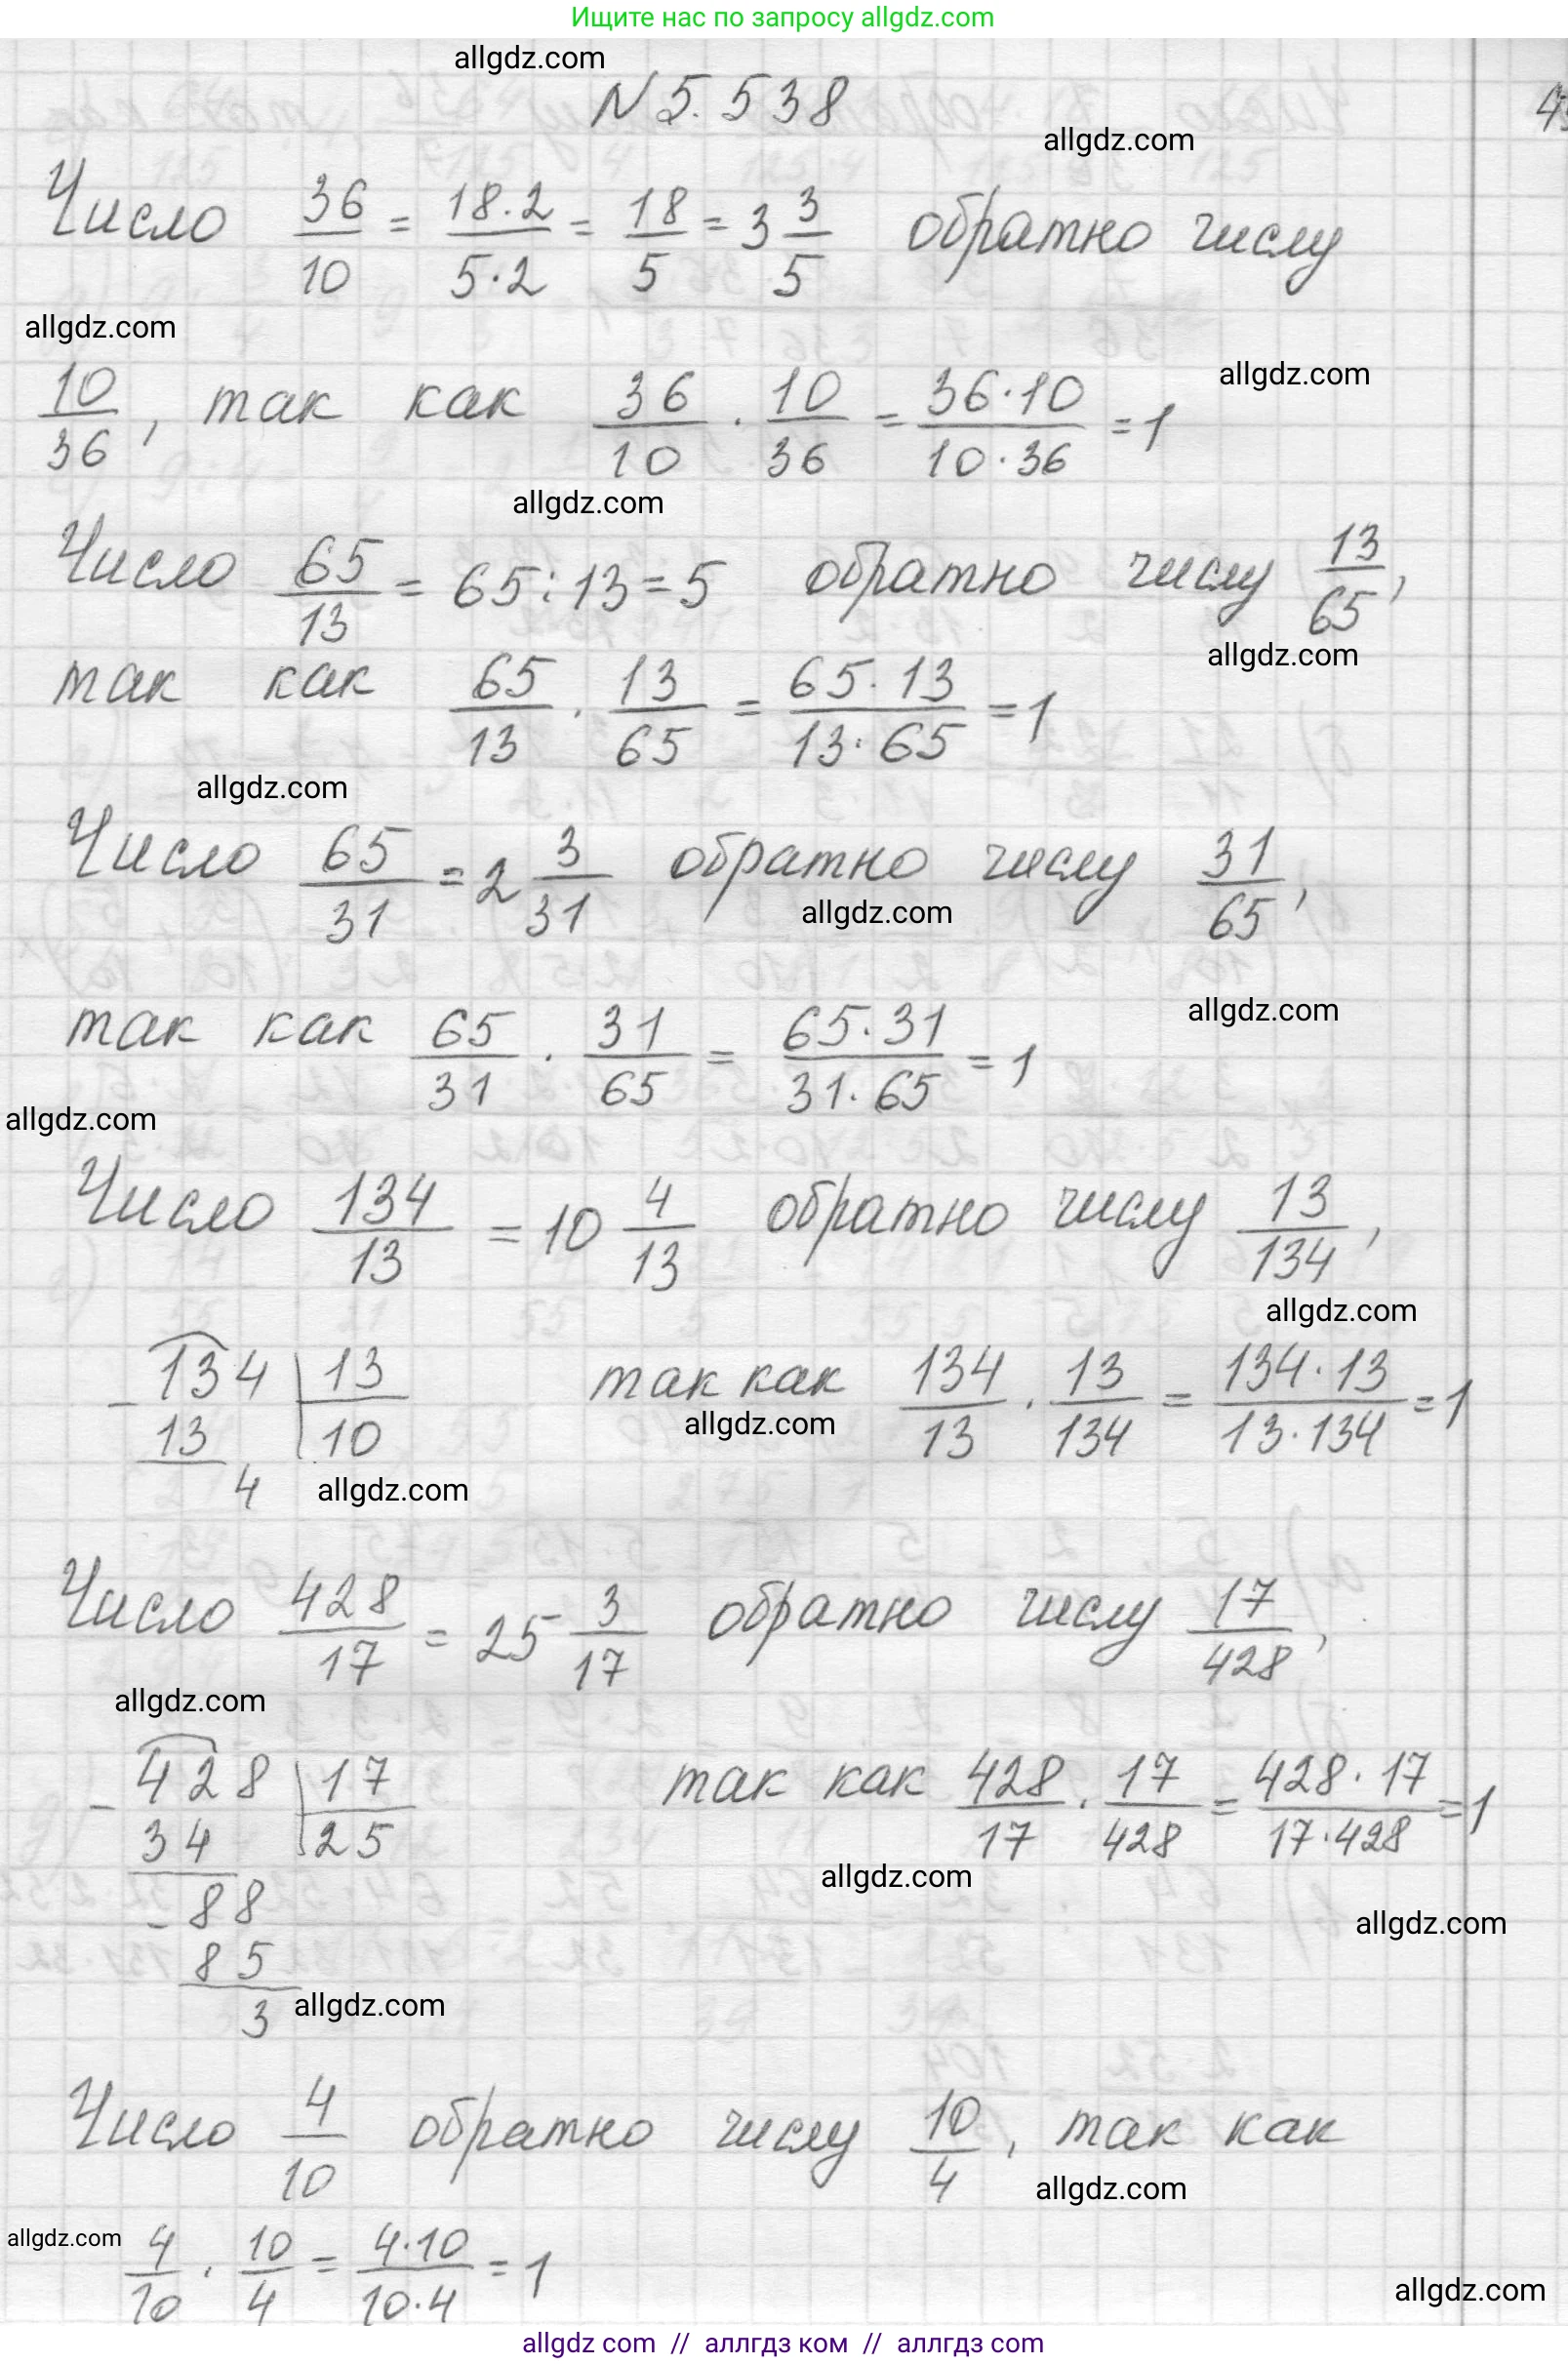 Ищите нас по запросу allgdz.com
allgdz.com
N 5.538
allgdz.com
Число 36/10 = 18·2/5·2 = 18/5 = 3 3/5 обратно числу
allgdz.com
allgdz.com
10/36, так как 36/10 · 10/36 = 36·10/10·36 = 1
allgdz.com
Число 65/13 = 65:13=5 обратно числу 13/65,
allgdz.com
так как 65/13 · 13/65 = 65·13/13·65 = 1
allgdz.com
Число 65/31 = 2 3/31 обратно числу 31/65,
allgdz.com
allgdz.com
так как 65/31 · 31/65 = 65·31/31·65 = 1
allgdz.com
Число 134/13 = 10 4/13 обратно числу 13/134,
allgdz.com
134 | 13 так как 134/13 · 13/134 = 134·13/13·134 = 1
- 13 | 10
allgdz.com
4
allgdz.com
Число 428/17 = 25 3/17 обратно числу 17/428,
allgdz.com
- 428 | 17 так как 428/17 · 17/428 = 428·17/17·428 = 1
34 | 25
allgdz.com
- 88
allgdz.com
85
3
allgdz.com
Число 4/10 обратно числу 10/4, так как
allgdz.com
allgdz.com
4/10 · 10/4 = 4·10/10·4 = 1
allgdz.com
allgdz com // аллгдз ком // аллгдз com